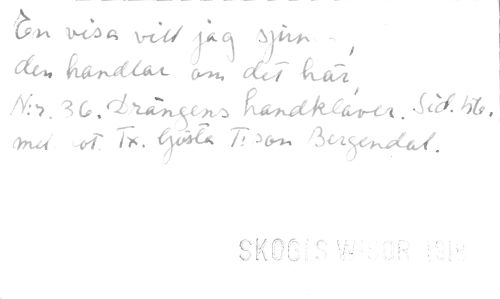 En visa vill jag sjun
den handlar om det här,
N:r. 36. Drängens handklaver. Sid. 46.
med not. Tx. Gösta T:son Bergendal.
SKOGIS WISOR 1918